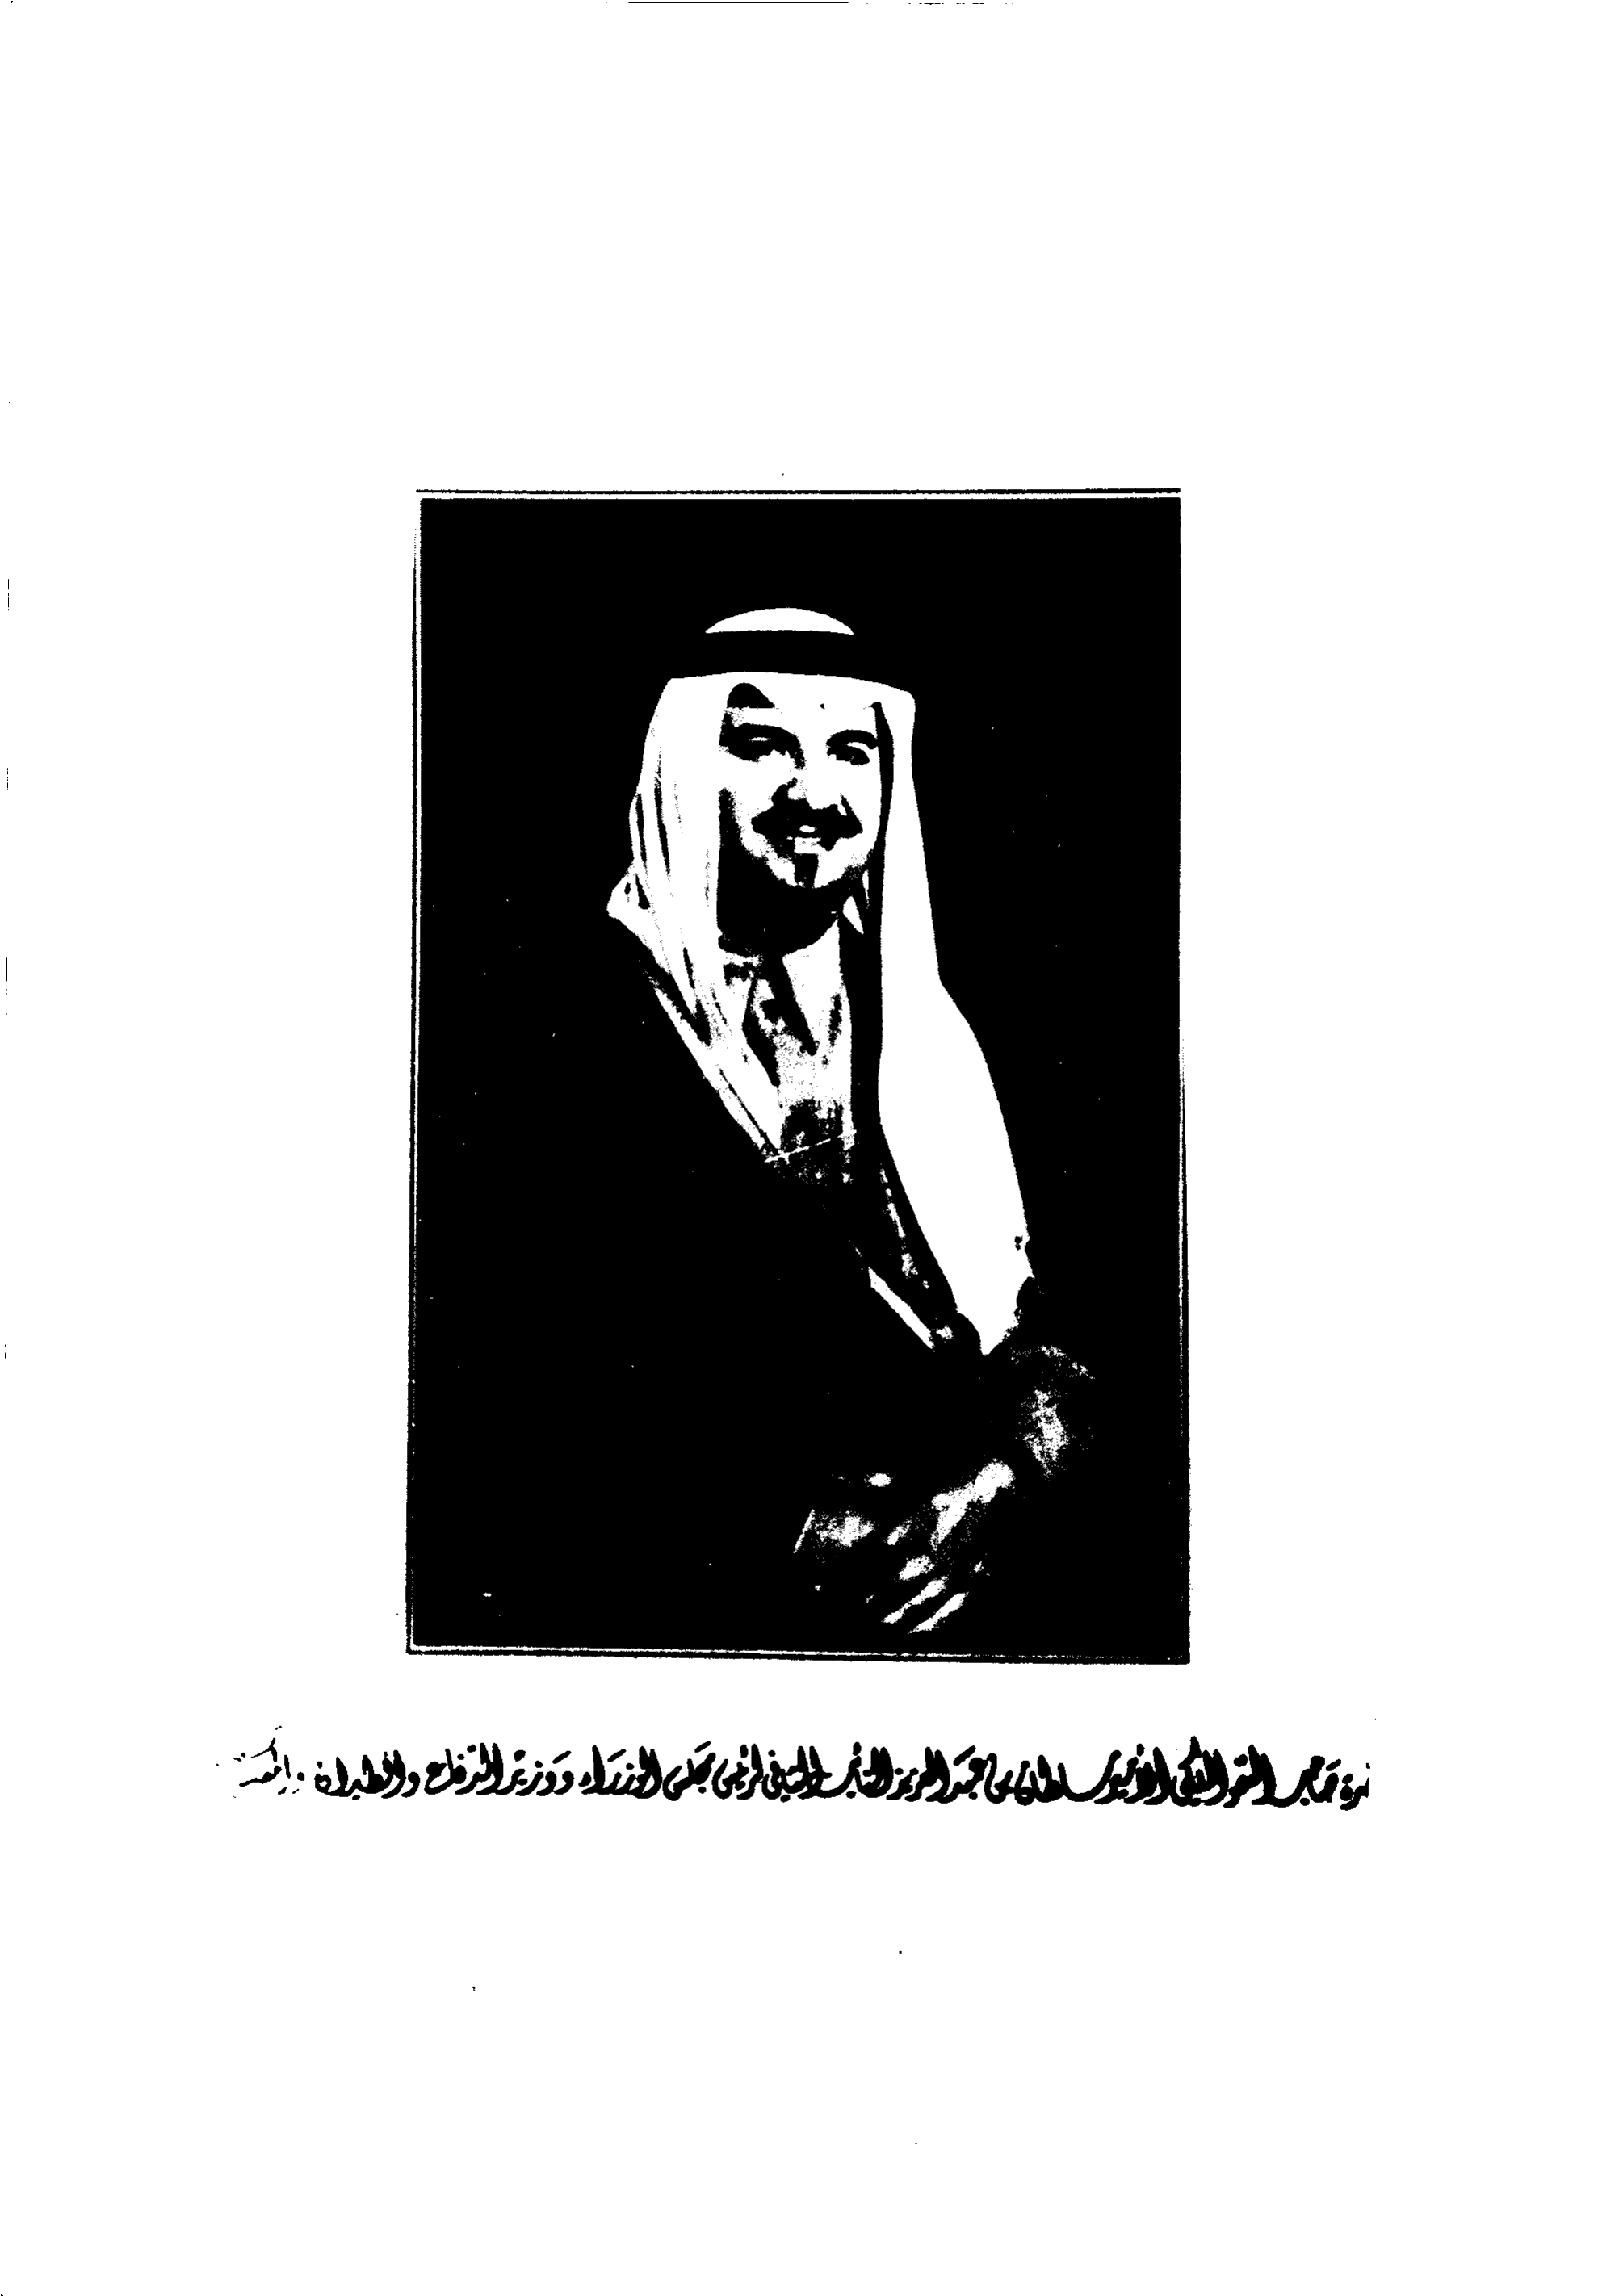 صاحب السمو الملكي الأمير سلطان بن عبد العزيز النائب الثاني لرئيس مجلس الوزراء ووزير الدفاع والطيران